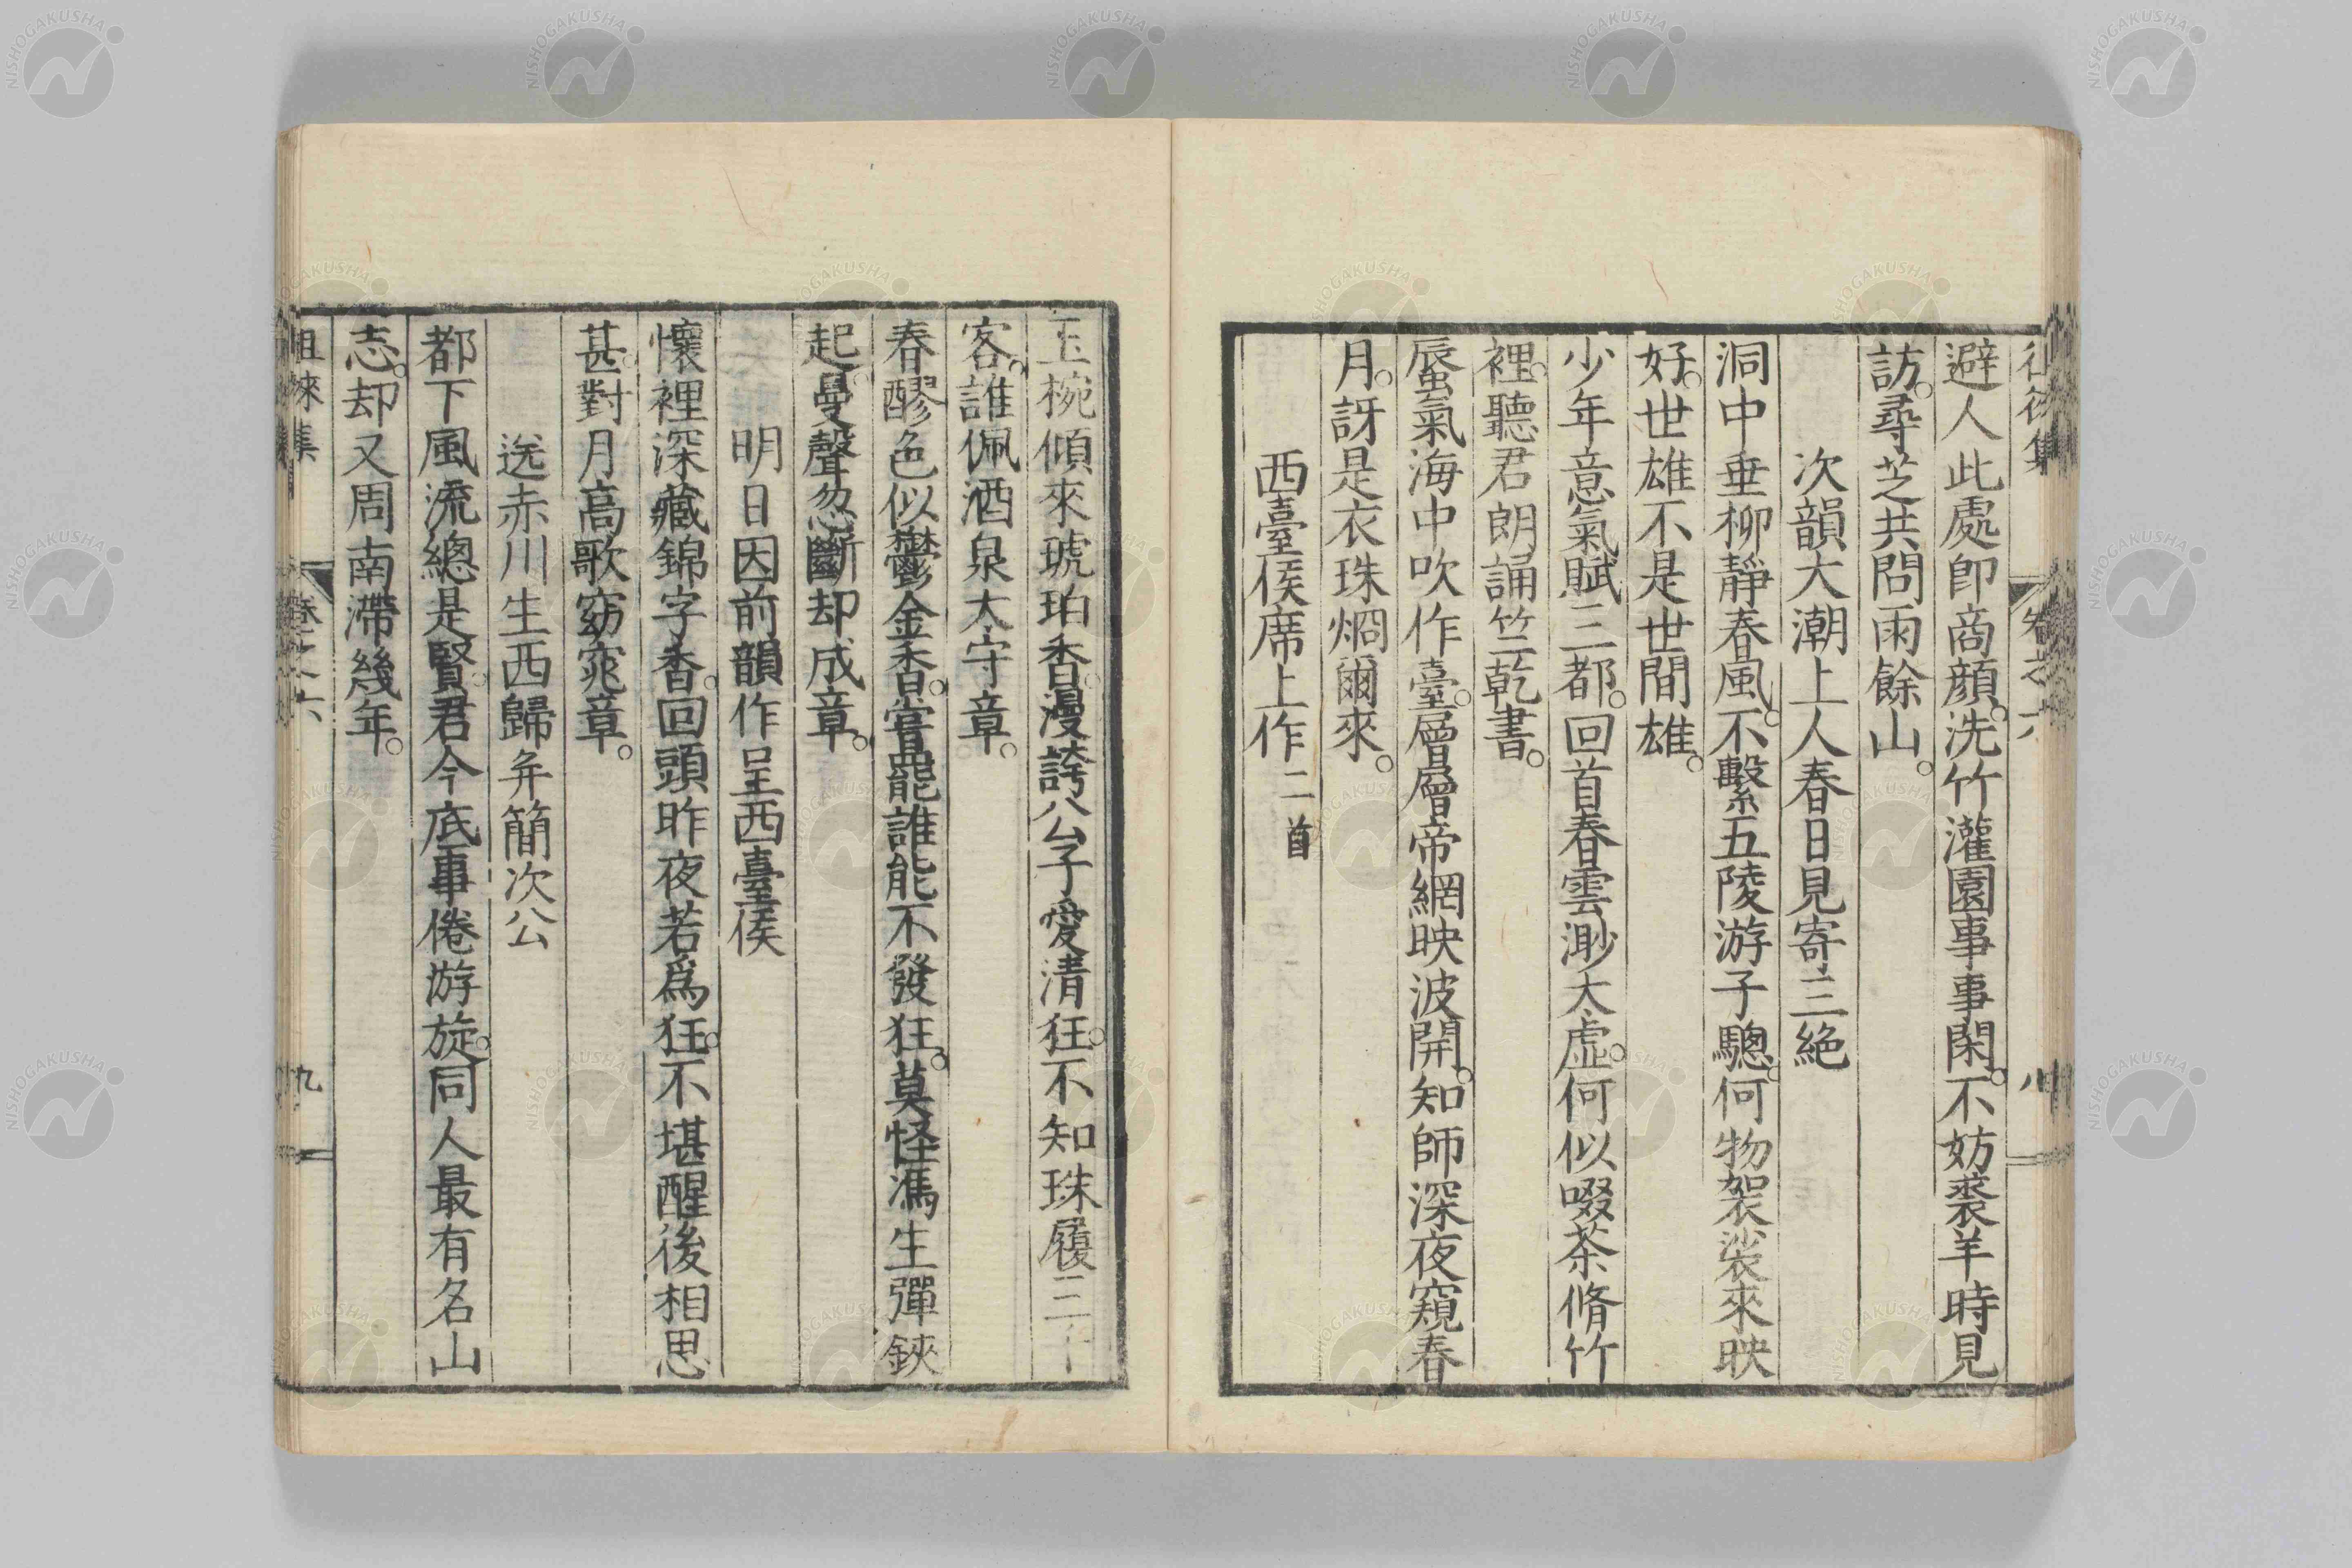 避人此處卽商顔。洗竹灌園事事閑。不妨裘羊時見
訪。尋芝共問雨餘山。
次韻大潮上人春日見寄三絶
洞中垂柳靜春風。不繫五陵游子驄。何物袈裟來映
好。世雄不是世間雄。
少年意氣賦三都。回首春雲渺太虛。何似啜茶脩竹
裡。聽君朗誦竺乾書。
蜃氣海中吹作臺。層層帝網映波開。知師深夜窺春
月。訝是衣珠烱爾來。
西臺侯席上作二首
玉椀傾來琥珀香。漫誇公子愛清狂。不知珠履三千
客。誰佩酒泉太守章。
春醪色似鬱金香。嘗罷誰能不發狂。莫怪馮生彈鋏
起。曼聲忽斷却成章。
明日因前韻作呈西臺侯
懷裡深藏錦字香。回頭昨夜若爲狂。不堪醒後相思
甚。對月高歌窈窕章。
送赤川生西歸弁簡次公
都下風流總是賢。君今底事倦游旋。同人最有名山
志。却又周南滯幾年。
徂徠集 卷之六 九